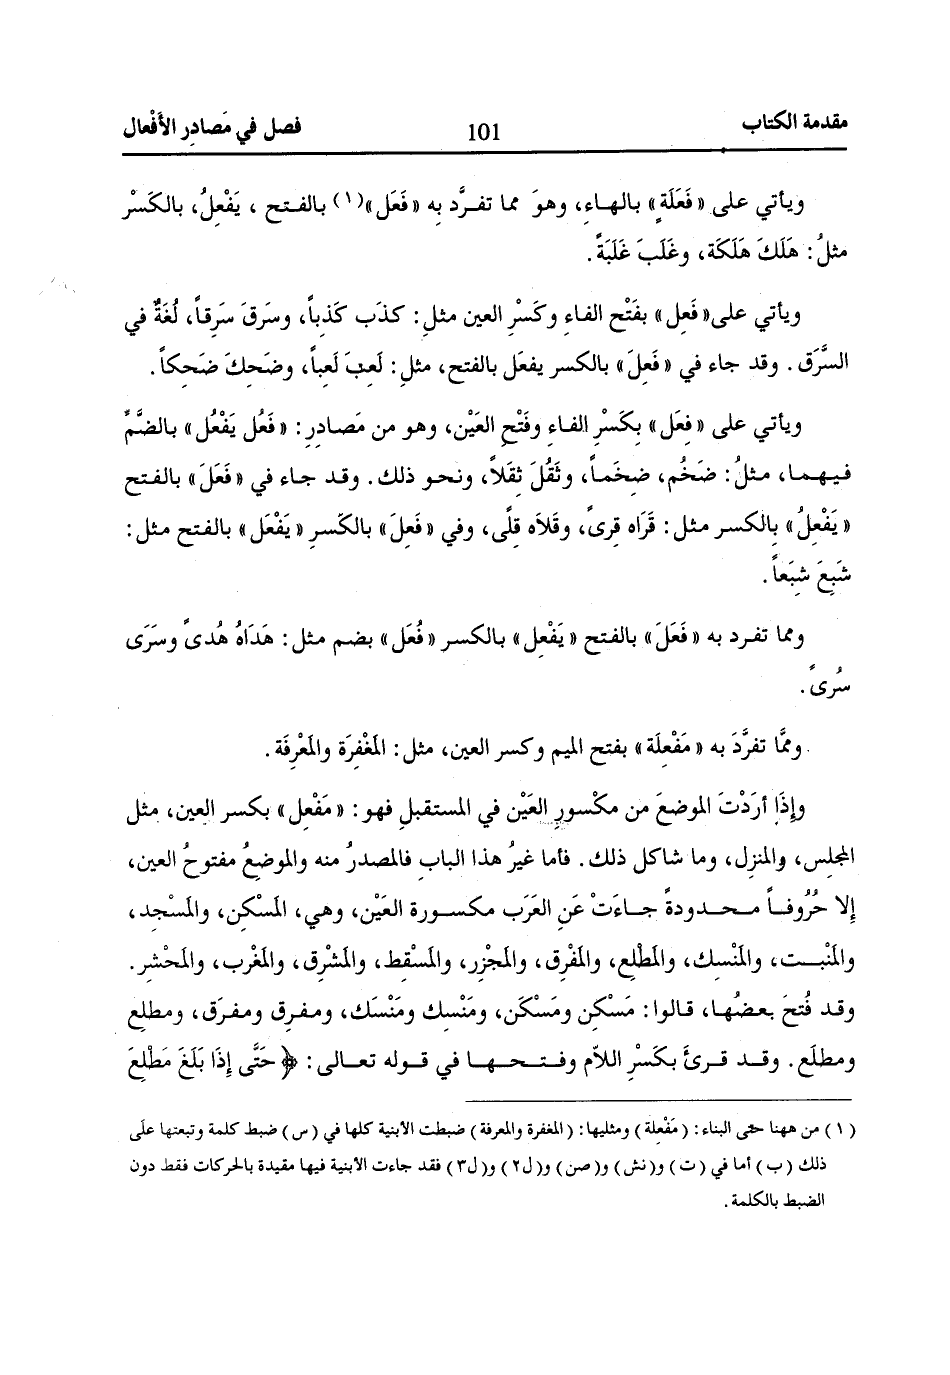 مقدمة الكتاب 101 فصل في مَصادِر الأَفْعال
ويأتي على «فَعَلَةٍ» بالهاءِ، وهوَ مما تفرَّد بِه «فَعَل»(١) بالفتح ، يَفْعِلُ، بالكَسْر
مثلُ: هَلَكَ هَلَكَة، وغَلَبَ غَلَبَةً.
ويأتي على «فَعِل» بفَتْح الفاءِ وكَسْرِ العين مثل: كذَب كَذِباً، وسَرقَ سَرِقاً، لُغَةٌ في
السَّرَق. وقد جاء في «فَعِلَ» بالكسر يفعَل بالفتح، مثل: لَعِبَ لَعِباً، وضَحِكَ ضَحِكاً.
ويأتي على «فِعَل» بِكَسْرِ الفاءِ وفَتْحِ العَيْن، وهو من مَصادِرِ: «فَعُل يَفْعُل» بالضَّمِّ
فيهما، مثلُ: ضَخُم، ضِخَماً، وثَقُلَ ثِقَلاً، ونحو ذلك. وقد جاء في «فَعَلَ» بالفتح
«يَفْعِلُ» بالكسر مثل: قَرَاه قِرىً، وقَلاَه قِلًى، وفي «فَعِلَ» بالكَسرِ «يَفْعَل» بالفتح مثل:
شَبِعَ شِبَعاً.
ومما تفرد به «فَعَلَ» بالفتح «يَفْعِل» بالكسر «فُعَل» بضم مثل: هَدَاهُ هُدىً وسَرَى
سُرىً.
وممَّا تفرَّدَ به «مَفْعِلَة» بفتح الميم وكسر العين، مثل: المَغْفِرَة والمَعْرِفَة.
وإِذَا أرَدْتَ الموضعَ من مكْسورِ العَيْن في المستقبلِ فهو: «مَفْعِل» بكسر العين، مثل
المجلِس، والمنزِل، وما شاكل ذلك. فأما غيرُ هذا الباب فالمصدرُ منه والموضعُ مفتوحُ العين،
إلا حُرُوفاً محدودةً جاءَتْ عَنِ العَرَب مكسورة العَيْن، وهي، المَسْكِن، والمَسْجِد،
والمَنْبِت، والمَنْسِك، والمَطْلِع، والمَفْرِق، والمَجْزِر، والمَسْقِط، والمَشْرِق، والمَغْرِب، والمَحْشِر.
وقد فُتحَ بعضُها، قالوا: مَسْكِن ومَسْكَن، ومَنْسِك ومَنْسَك، ومفرِق ومفرَق، ومطلِع
ومطلَع. وقد قرئَ بكَسْرِ اللاَّم وفتحها في قوله تعالى: ﴿ حَتَّى إِذَا بَلَغَ مَطْلِعَ
(١) من ههنا حتى البناء: (مَفْعِلة) ومثليها: (المغفرة والمعرفة) ضبطت الأبنية كلها في (س) ضبط كلمة وتبعتها على
ذلك (ب) أما في (ت) و(نش) و(صن) و(ل٢) و(ل٣) فقد جاءت الأبنية فيها مقيدة بالحركات فقط دون
الضبط بالكلمة.